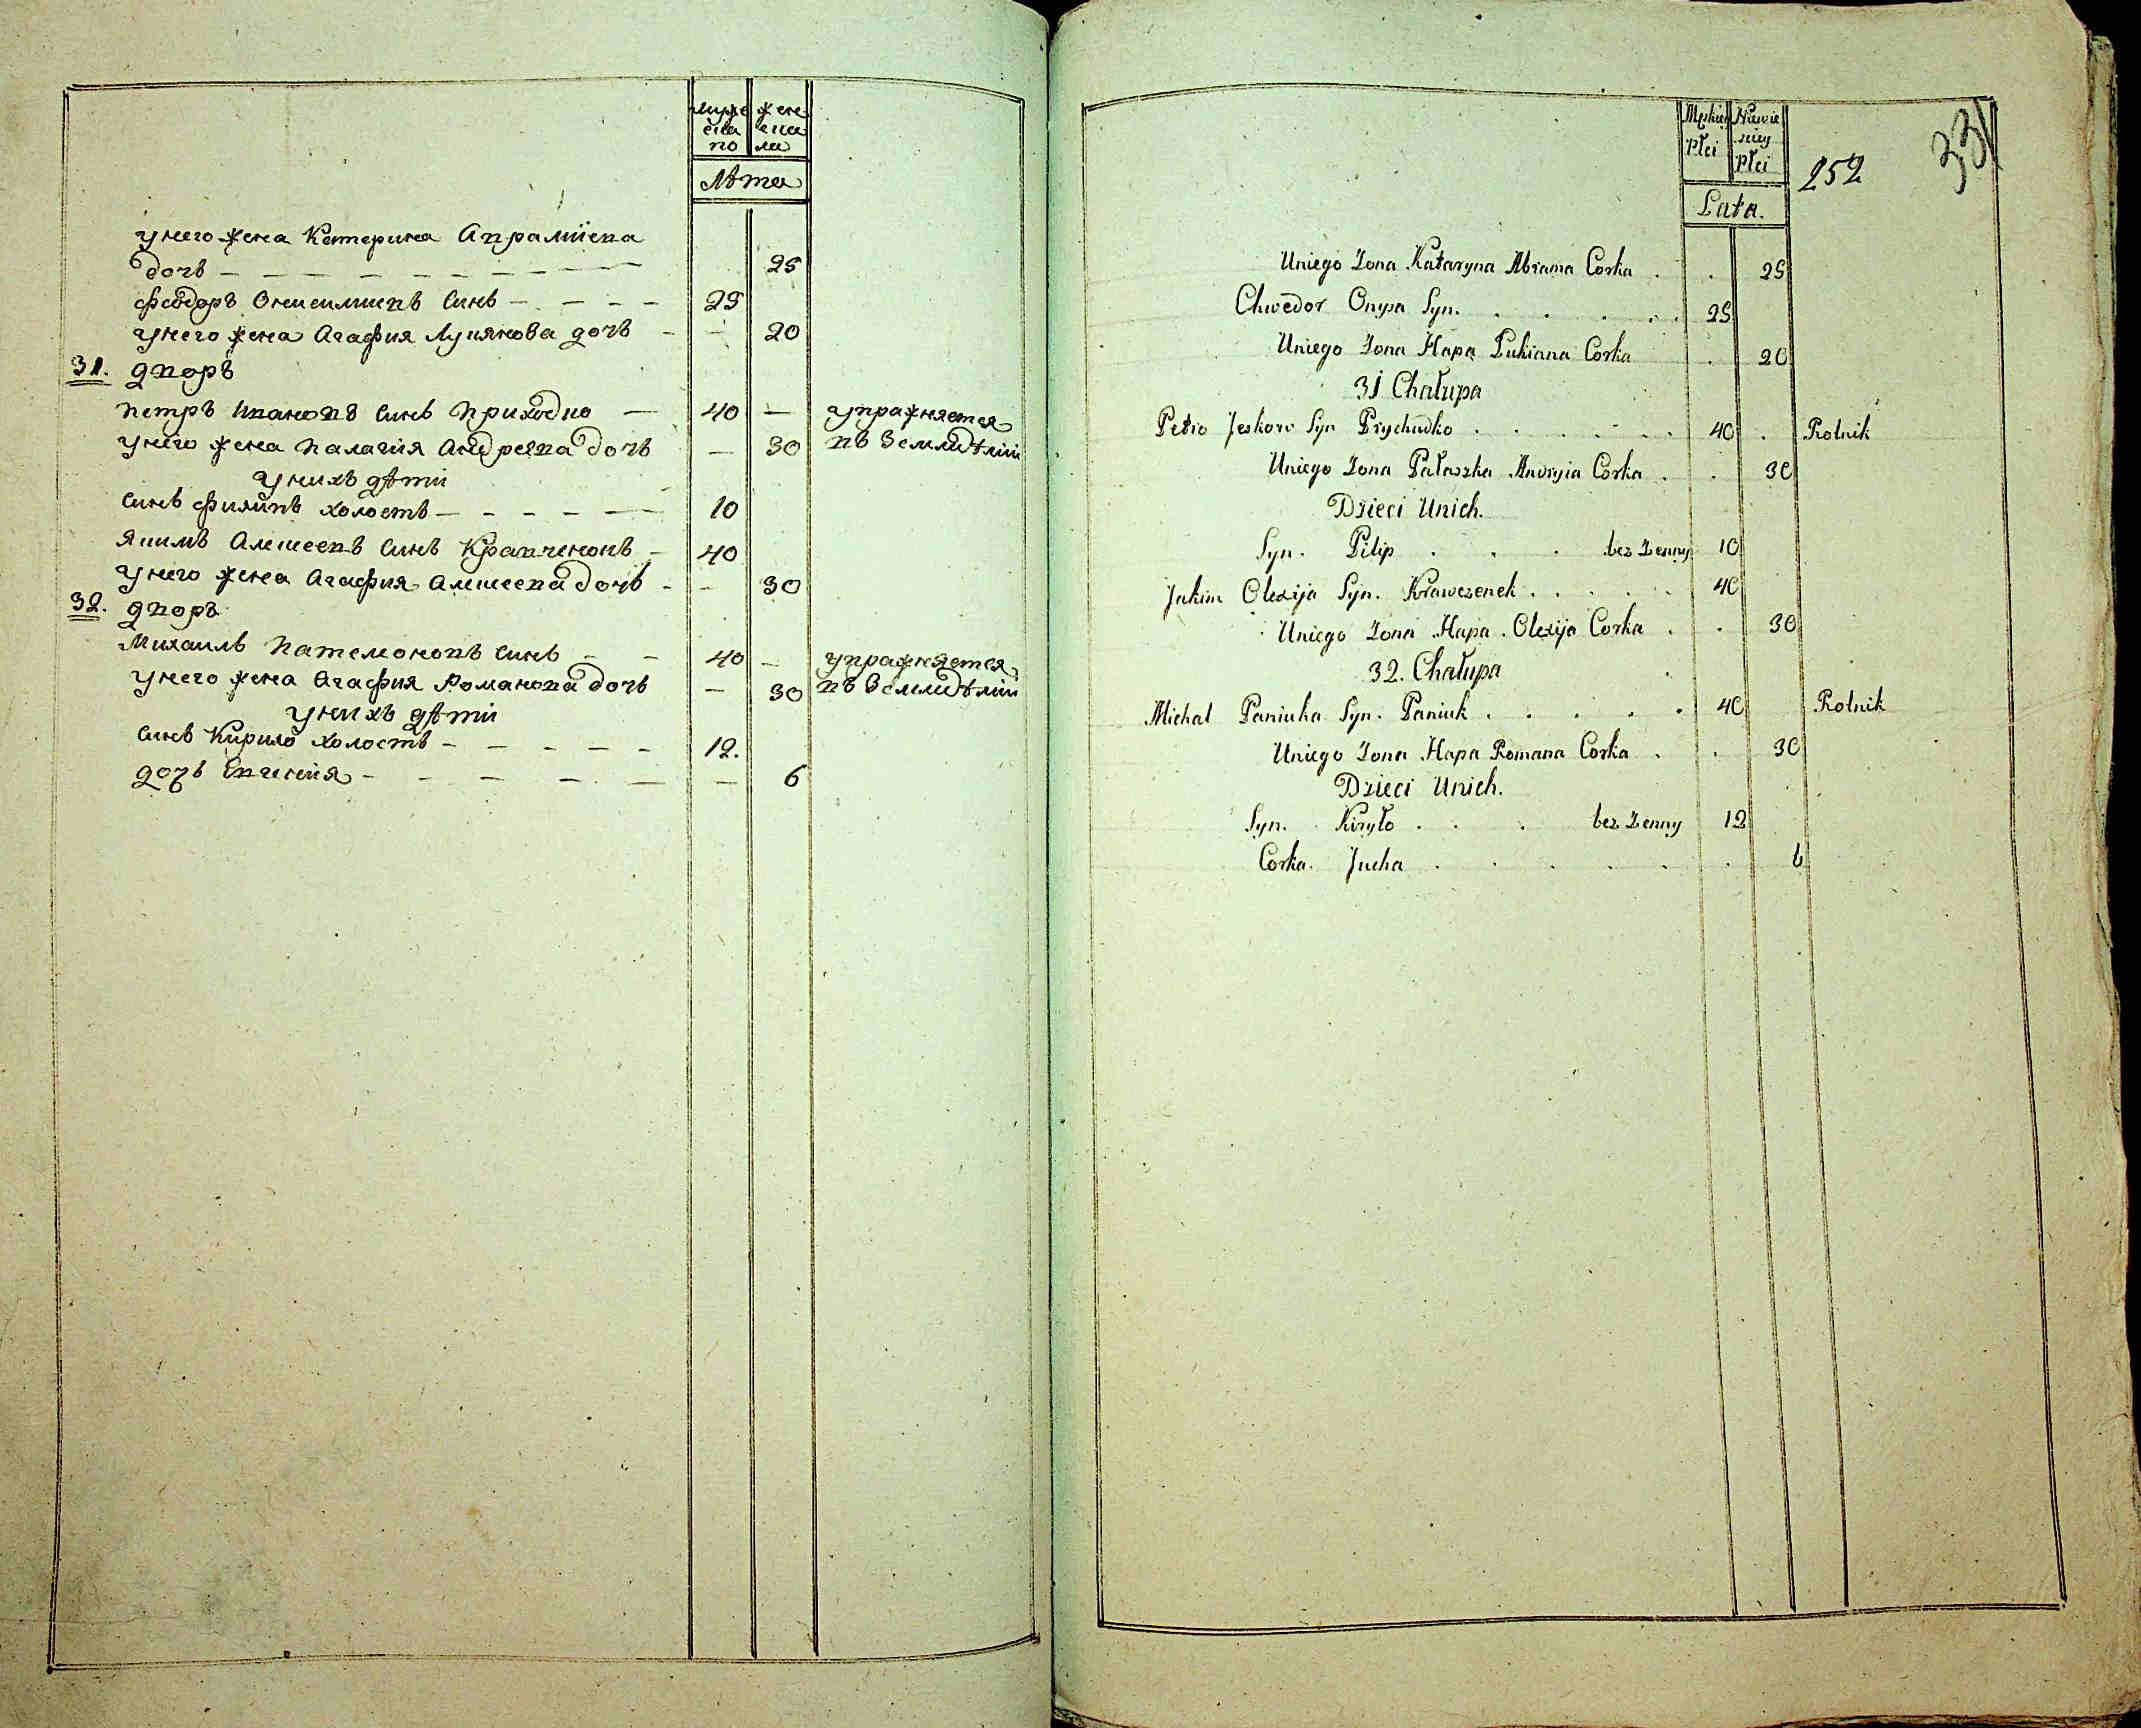 муже
ска
по
жене
ска
ли
Лѣта
у него жена Катерина Апрамiена
дочь 25
Феодоръ Онисимиепъ Синъ 25
у него жена Агафия Лукянова дочь 20
31. дпоръ
Петръ Ипанопъ Синъ Приходко 40 упражняется
у него жена Палагiя Андреяпа дочь 30 пъ Земледѣлiи
у нихъ дѣти
Синъ Филипъ холостъ 10
Якимъ Алексеепъ Синъ Крапченокъ 40
у него жена Агафия Алексеепа дочь 30
32. дпоръ
Михаилъ Пателемонопъ Синъ 40 упражняется
у него жена Агафия Романопа дочь 30 пъ Земледѣлiи
у нихъ дѣти
Синъ Кирило холостъ 12.
дочь Епгенiя 6
Męskiej
Płci
Niewie
sciey
Płci
252
331
Lata.
Uniego Zona Kataryna Abrama Corka 25
Chwedor Onysa Syn. 25
Uniego Zona Hapa Łukiana Corka 20
31 Chałupa
Petro Jeskow Syn Prychudko 40 Rolnik
Uniego Zona Pałaszka Andryia Corka 30
Dzieci Unich.
Syn. Pilip bez Zenny 10
Jakim Olexija Syn. Krawczenek 40
Uniego Zona Hapa Olexija Corka 30
32. Chałupa
Michał Paniuka Syn. Paniuk 40 Rolnik
Uniego Zona Hapa Romana Corka 30
Dzieci Unich.
Syn. Kiryło bez Zenny 12
Corka. Jucha 6